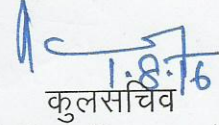 1.8.16
कुलसचिव